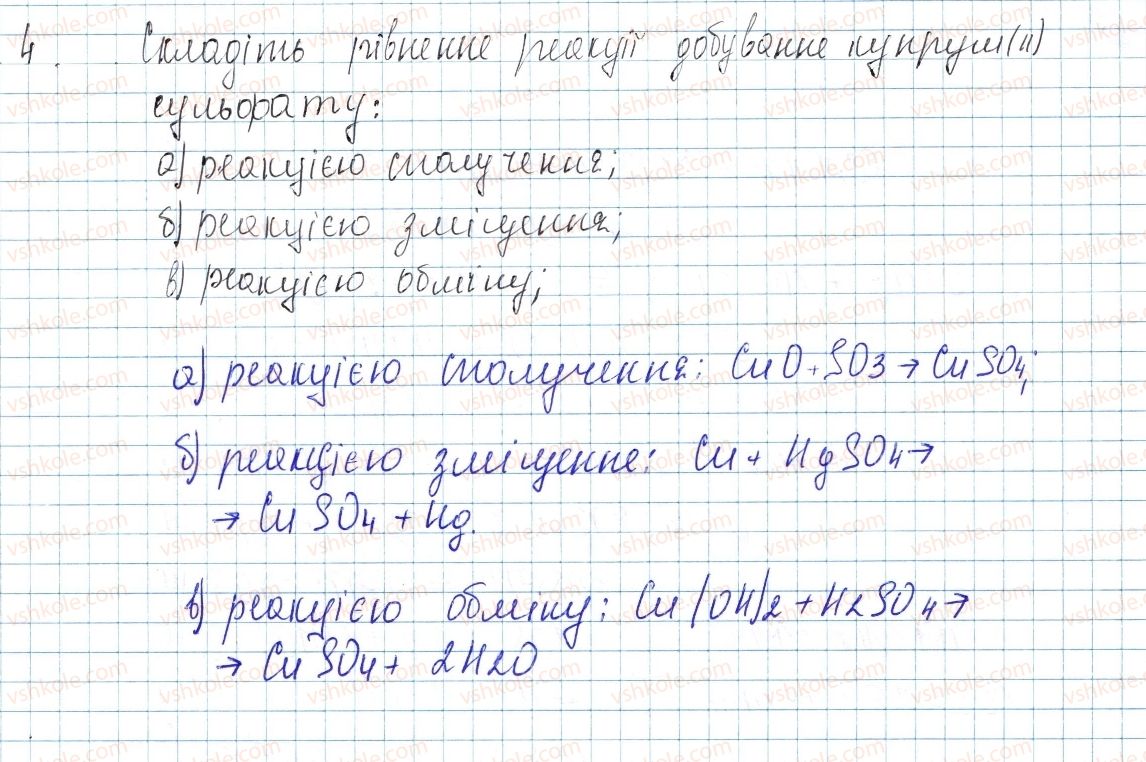 4. Складіть рівненне реакції добуванне купрум(ІІ)
сульфату:
а) реакцією сполучення;
б) реакцією зміщення;
в) реакцією обміну;
а) реакцією сполучення: CuO + SO3 → CuSO4;
б) реакцією зміщенне: Cu + HgSO4 →
→ CuSO4 + Hg.
в) реакцією обміну: Cu(OH)2 + H2SO4 →
→ CuSO4 + 2H2O